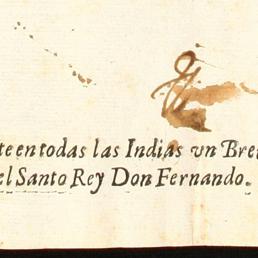 te en todas las Indias vn Bre
el Santo Rey Don Fernando.